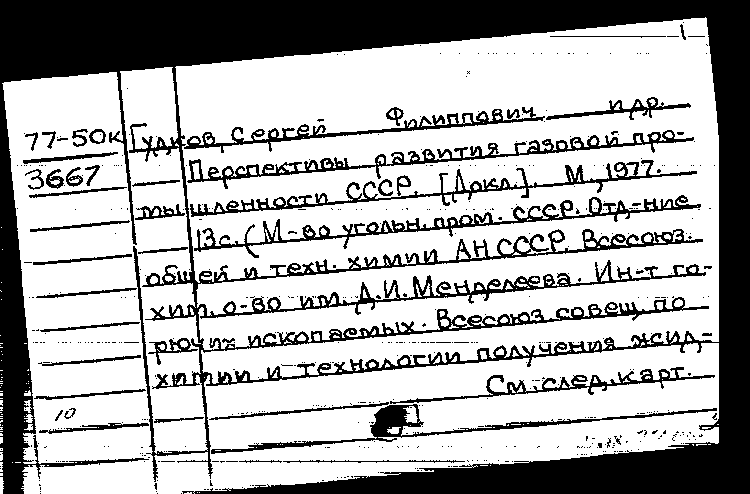 77-50к Гудков, Сергей Филиппович и др.
3667 Перспективы развития газовой про-
мышленности СССР. [Докл.]. М., 1977.
13с. (М-во угольн. пром. СССР. Отд-ние
общей и техн. химии АН СССР. Всесоюз.
хим. о-во им. Д.И. Менделеева. Ин-т го-
рючих ископаемых. Всесоюз. совещ. по
химии и технологии получения жид-
См. след. карт.
10